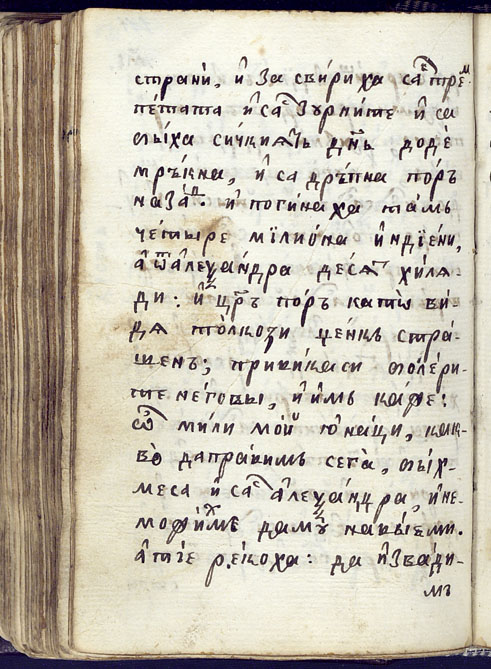 странѝ, и҆ За свириха са стре м
пѐтата и҆ са Зурните и҆ са
биха сичкиатъ днь додѐ
мръкна, и҆ са дръпна поръ
назад. и҆ погинаха тамъ
чѐтыре мїлиѡ́на и҆ндїе́ни,
а ѿ алеѯандра десѧ хилѧ-
ди: и҆ црь поръ катѡ ви-
дѧ толкози ценкъ стра̀-
шенъ; привикаси болѐри-
те нѐговы, и҆ и҆мъ каже:
ѽ мили мои̑ ю҆наци, как-
во̀ даправимъ сега̀, быхъ-
меса и҆ са а҆леѯандра, и҆не-
можимъ дамꙋ̀ навїеми.
а҆ тїе рекоха: да и҆звади-
мъ